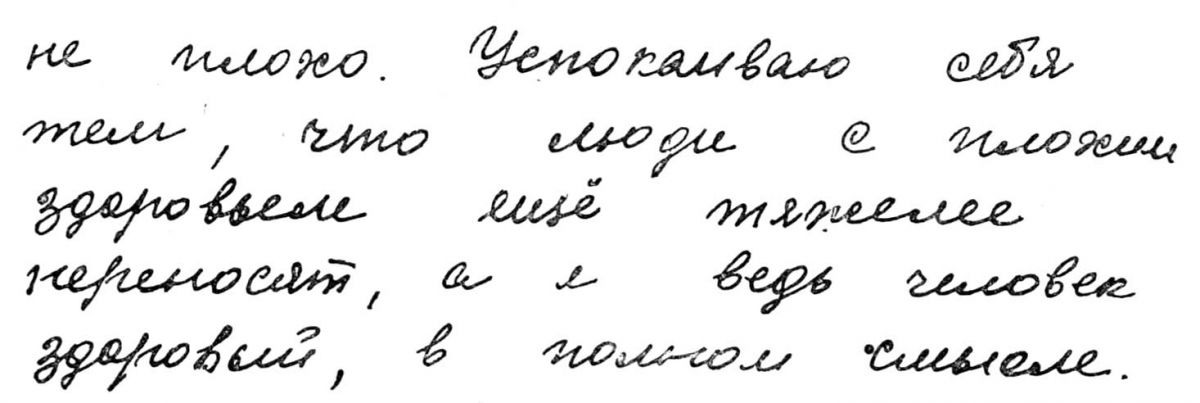 не плохо. Успокаиваю себя
тем, что люди с плохим
здоровьем ещё тяжелее
переносят, а я ведь человек
здоровый, в полном смысле.